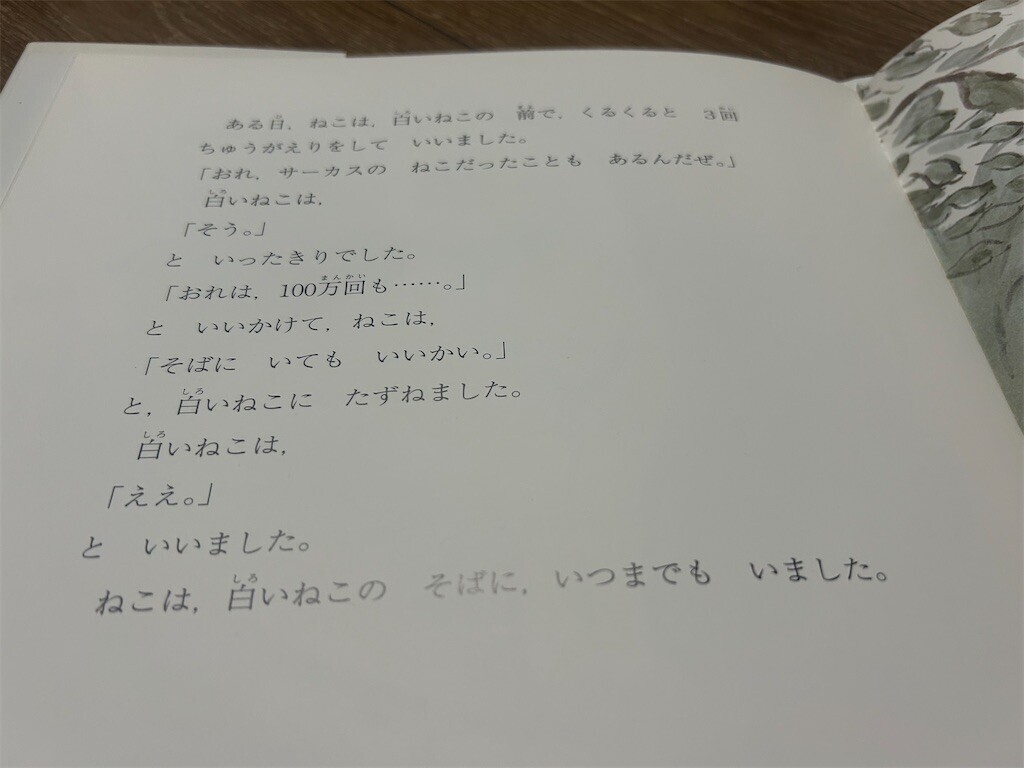 ある日，ねこは，白いねこの　前で，くるくると　3回
ちゅうがえりをして　いいました。
「おれ，サーカスの　ねこだったことも　あるんだぜ。」
白いねこは，
「そう。」
と　いったきりでした。
「おれは，100万回も……。」
と　いいかけて，ねこは，
「そばに　いても　いいかい。」
と，白いねこに　たずねました。
白いねこは，
「ええ。」
と　いいました。
ねこは，白いねこの　そばに，いつまでも　いました。